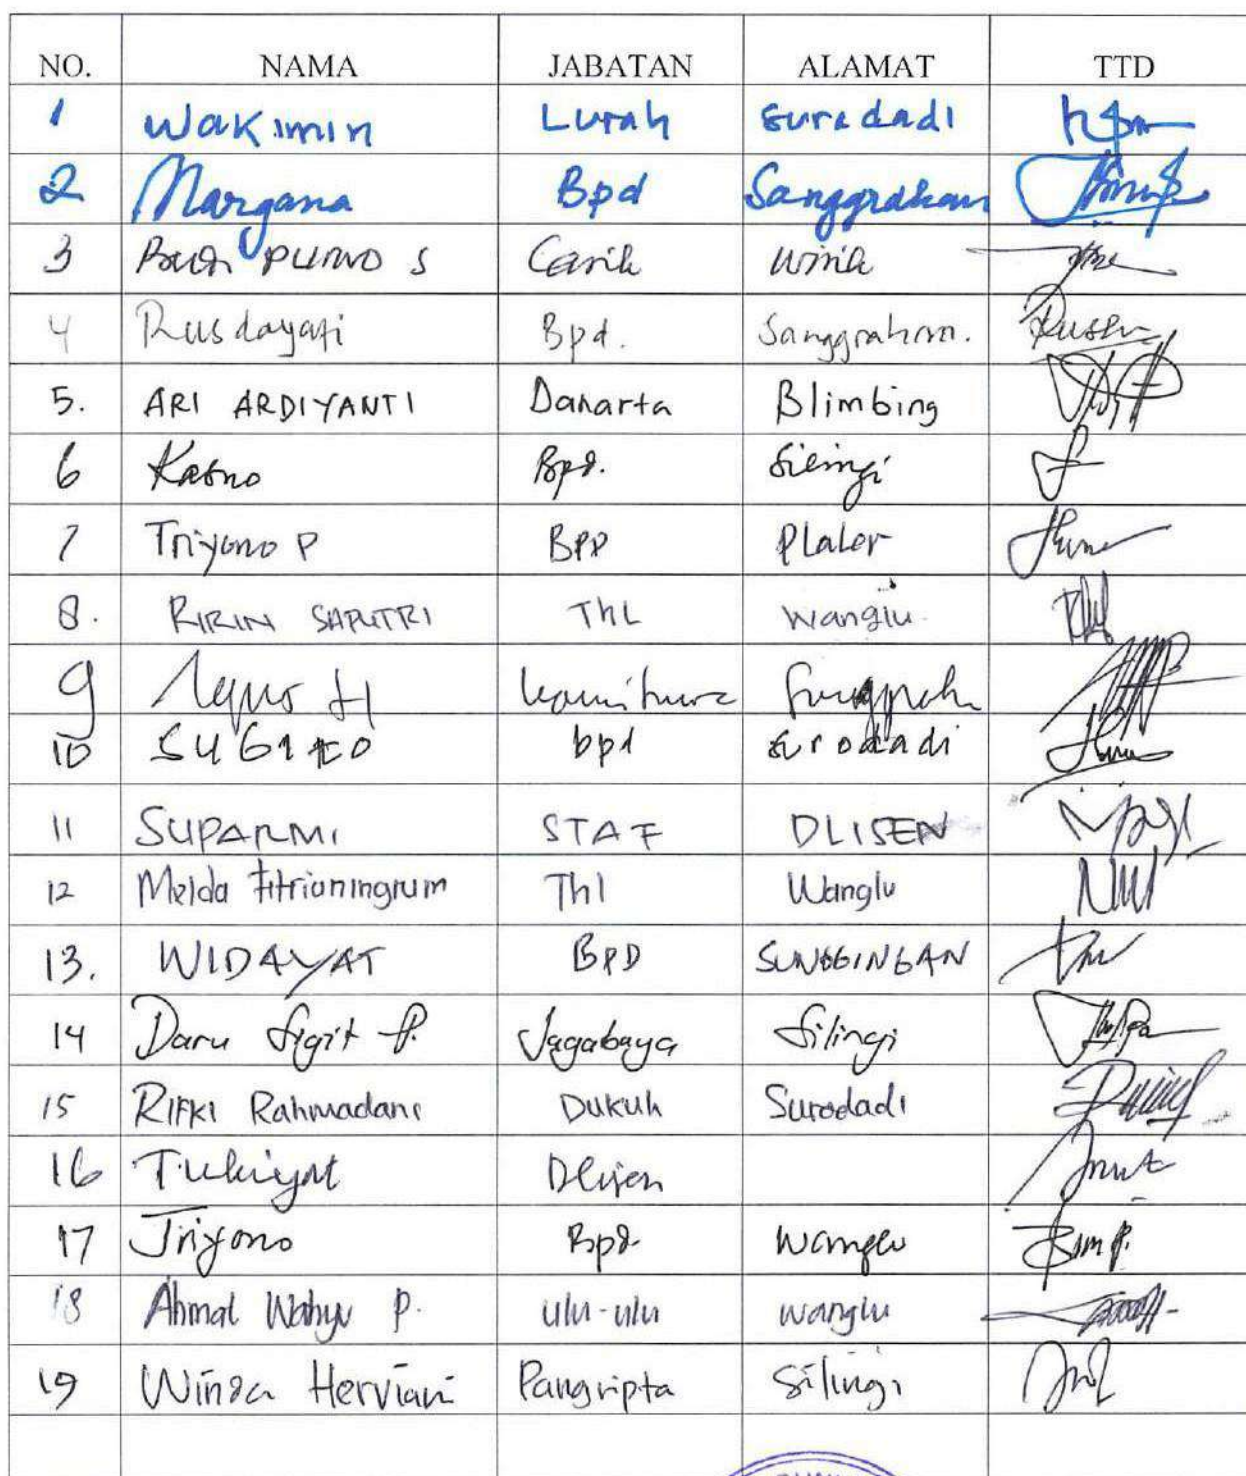 NO. NAMA JABATAN ALAMAT TTD
1 Wakimin Lurah Suradadi
2 Margana Bpd Sanggrahan
3 Budi PURWO S Carik
4 Rusdayati Bpd. Sanggrahan.
5. ARI ARDIYANTI Danarta Blimbing
6 Kasno Bpd. Silingi
7 Triyono P BPD Plaler
8. RIRIN SAPUTRI THL Wanglu
9 Agus H
10 bpd Surodadi
11 SUPARMI STAF DLISEN
12 Melda Fitrianingrum Thl Wanglu
13. WIDAYAT BPD SUNGGINGAN
14 Daru Sigit P. Jagabaya Silingi
15 RIFKI Rahmadani DUKUH Surodadi
16 Tukiyat Dlisen
17 Triyono Bpd. Wanglu
18 Ahmal Wahyu P. ulu-ulu wanglu
19 Winda Herviani Pangripta Silingi